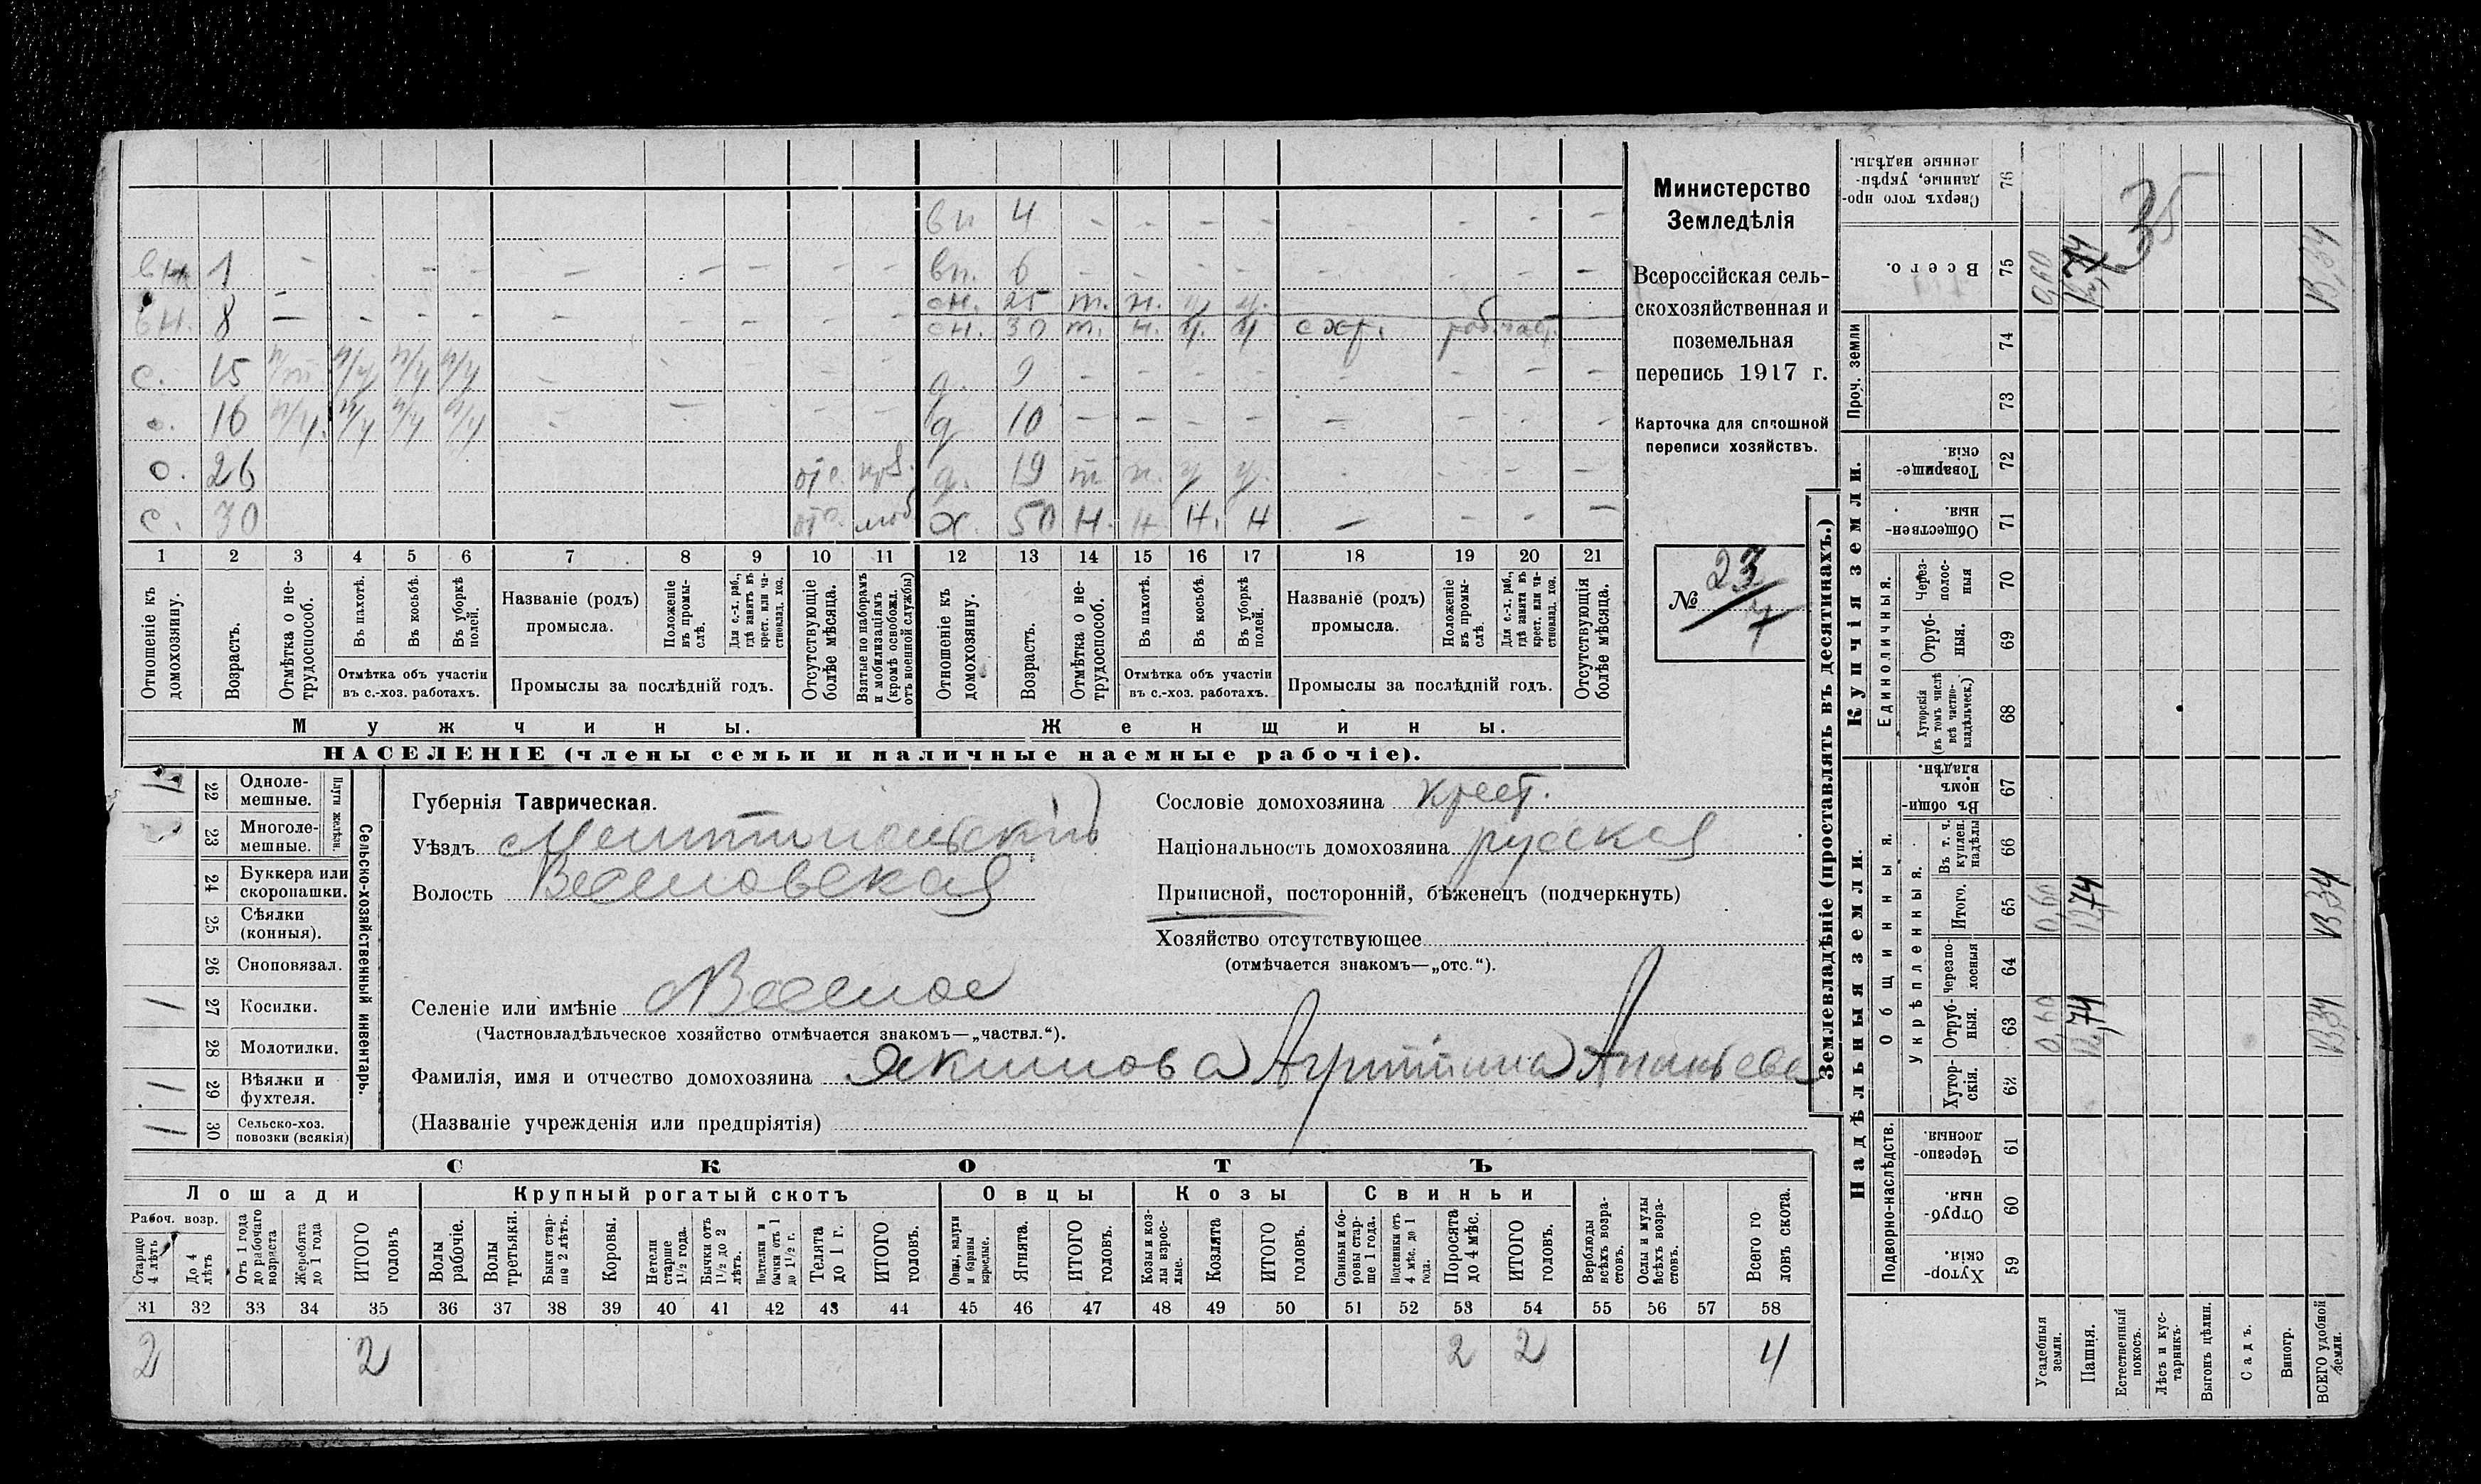 вн 4 - - - - - - - -
вн. 1 - - - - - - - вн. 6 - - - - - - - -
сн. 25 т. н. у. у.
вн. 8 - - - - - - - - - сн. 30 т. н. у. у
с. 15 - - - - - д. 9 - - - - - - - -
с. 16 - - - - - д 10 - - - - - - - -
с. 26 отс. д. 19 т н. у у. - - - -
с. 30 отс. моб х. 50 н. н. н. н - - - -
1 2 3 4 5 6 7 8 9 10 11 12 13 14 15 16 17 18 19 20 21
Отношеніе къ домохозяину.
Возрастъ.
Отмѣтка о не-трудоспособ.
Въ пахотѣ.
Въ косьбѣ.
Въ уборкѣ полей.
Отмѣтка объ участіи
въ с.-хоз. работахъ.
Названіе (родъ)
промысла.
Положеніе въ промы-слѣ.
Для с.-х. раб., гдѣ занятъ въ крест. или ча-стновлад. хоз.
Промыслы за послѣдній годъ.
Отсутствующіе болѣе мѣсяца.
Взятые по наборамъ и мобилизаціямъ (кромѣ освобожд. отъ военной службы)
Отношеніе къ домохозяину.
Возрастъ.
Отмѣтка о не-трудоспособ.
Въ пахотѣ.
Въ косьбѣ.
Въ уборкѣ полей.
Отмѣтка объ участіи
въ с.-хоз. работахъ.
Названіе (родъ)
промысла.
Положеніе въ промы-слѣ.
Для с.-х. раб., гдѣ занята въ крест. или ча-стновлад. хоз.
Промыслы за послѣдній годъ.
Отсутствующія болѣе мѣсяца.
Мужчины.
Женщины.
НАСЕЛЕНІЕ (члены семьи и наличные наемные рабочіе).
Министерство
Земледѣлія
Всероссійская сель-
скохозяйственная и
поземельная
перепись 1917 г.
Карточка для сплошной
переписи хозяйствъ.
№ 23/4
Сельско-хозяйственный инвентарь.
Плуги желѣзн.
22 Одноле-
мешные.
23 Многоле-
мешные.
24 Буккера или
скоропашки.
25 Сѣялки
(конныя).
26 Сноповязал.
1 27 Косилки.
28 Молотилки.
1 29 Вѣялки и
фухтеля.
1 30 Сельско-хоз.
повозки (всякія)
Губернія Таврическая.
Уѣздъ Мелитопольскій
Волость Веселовская
Селеніе или имѣніе Веселое
(Частновладѣльческое хозяйство отмѣчается знакомъ—„частвл.“).
Сословіе домохозяина крест.
Національность домохозяина русская
Приписной, посторонній, бѣженецъ (подчеркнуть)
Хозяйство отсутствующее
(отмѣчается знакомъ—„отс.“).
Фамилія, имя и отчество домохозяина Якимова Агриппина Ананьева
(Названіе учрежденія или предпріятія)
СКОТЪ
Лошади
Крупный рогатый скотъ
Овцы
Козы
Свиньи
Рабоч. возр.
Старше 4 лѣтъ
До 4 лѣтъ
Отъ 1 года до рабочаго возраста
Жеребята до 1 года
ИТОГО головъ
Волы рабочіе.
Волы третьяки.
Быки стар-ше 2 лѣтъ.
Коровы.
Нетели старше 1½ года.
Бычки отъ 1½ до 2 лѣтъ.
Подтелки и бычки отъ 1 до 1½ г.
Телята до 1 г.
ИТОГО головъ.
Овцы, валухи и бараны взрослые.
Ягнята.
ИТОГО головъ.
Козы и коз-лы взрос-лые.
Козлята
ИТОГО головъ.
Свиньи и бо-ровы стар-ше 1 года.
Подсвинки отъ 4 мѣс. до 1 года.
Поросята до 4 мѣс.
ИТОГО головъ.
Верблюды всѣхъ возра-стовъ.
Ослы и мулы всѣхъ возра-стовъ.
Всего го ловъ скота.
31 32 33 34 35 36 37 38 39 40 41 42 43 44 45 46 47 48 49 50 51 52 53 54 55 56 57 58
2 2 2 2 4
Землевладѣніе (проставлять въ десятинахъ.)
Купчія земли.
Надѣльныя земли.
Сверхъ того про-данные, укрѣп-ленные надѣлы. 76
Всего. 75 0,60 12,74 13,34
35
Проч. земли
74
73
Товарище-скія. 72
Обществен-ныя. 71
Единоличныя.
Через-полос-ныя 70
Отруб-ныя. 69
Хуторскія (въ томъ числѣ всѣ частно-владѣльческ.) 68
Общинныя.
Въ общи-номъ владѣн. 67
Укрѣпленныя.
Въ т. ч. куплен. надѣлы 66
Итого. 65 0,60 12,74 13,34
Черезпо-лосныя 64
Отруб-ныя. 63 0,60 12,74 13,34
Хутор-скія. 62
Подворно-наслѣдств.
Черезпо-лосныя. 61
Отруб-ныя. 60
Хутор-скія. 59
Усадебныя земли.
Пашня.
Естественный покосъ.
Лѣсъ и кус-тарникъ.
Выгонъ цѣлин.
Садъ.
Виногр.
ВСЕГО удобной земли.